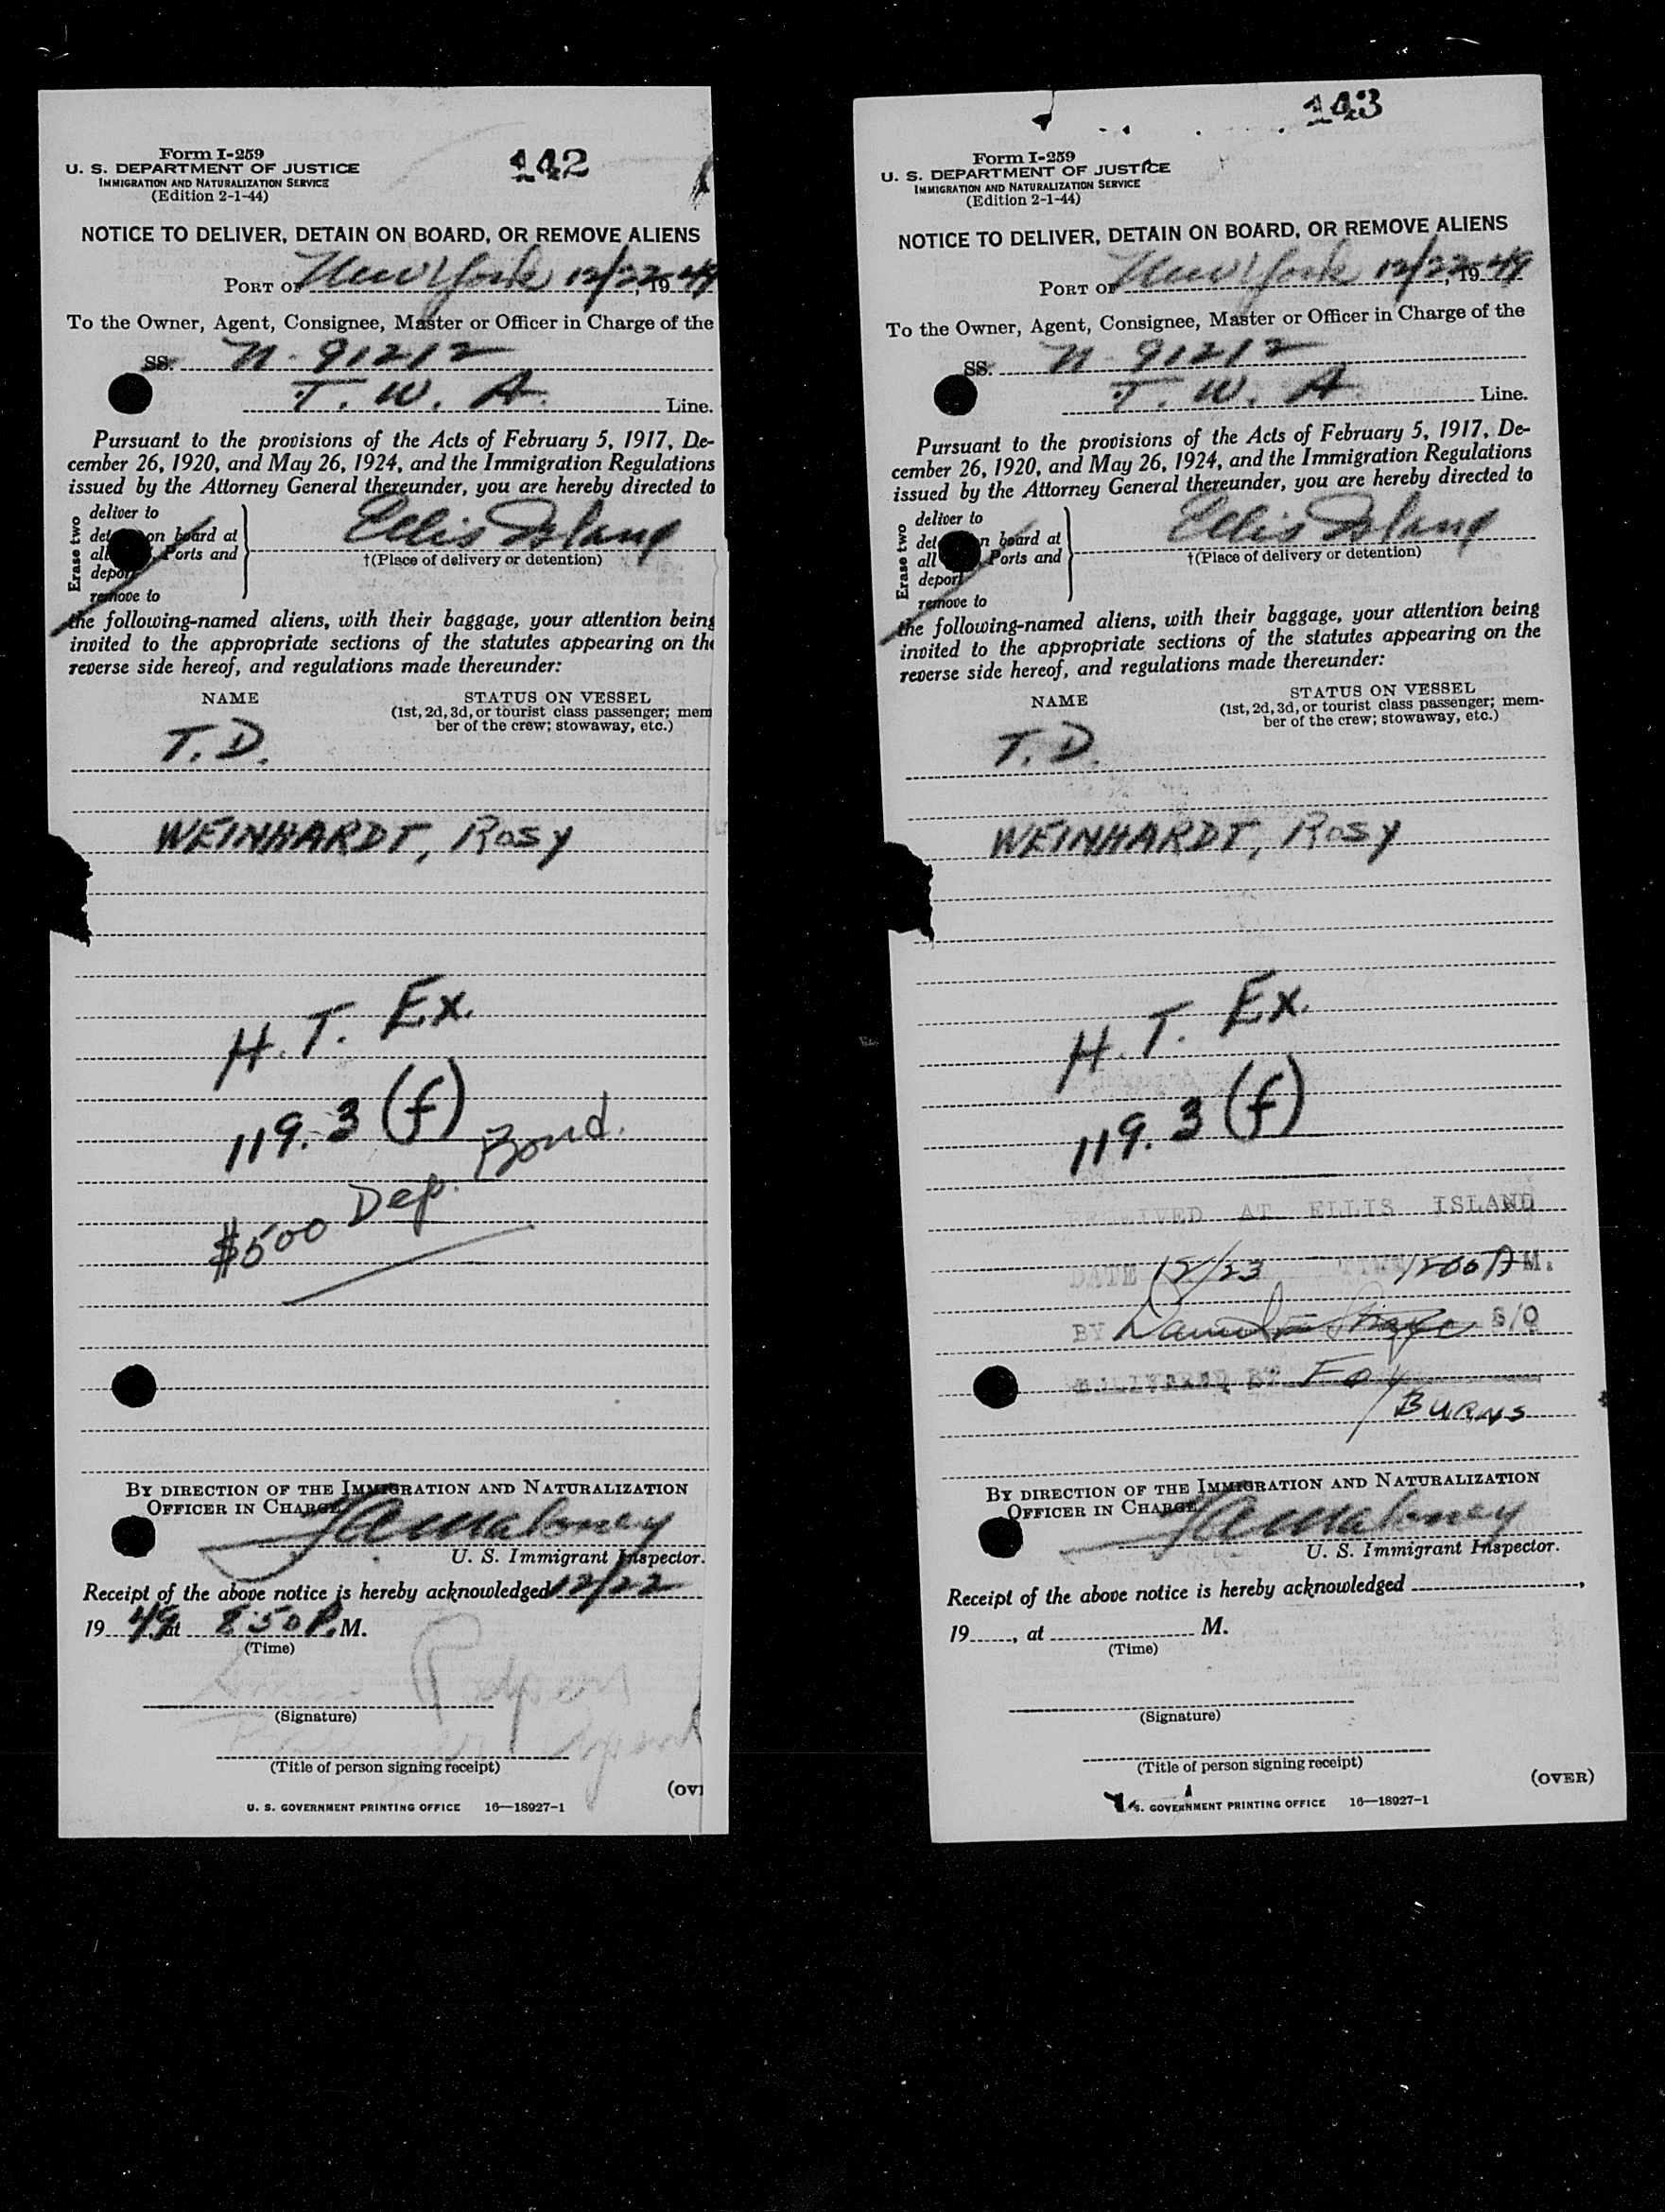 142
Form I-259
U. S. DEPARTMENT OF JUSTICE
IMMIGRATION AND NATURALIZATION SERVICE
(Edition 2-1-44)
NOTICE TO DELIVER, DETAIN ON BOARD, OR REMOVE ALIENS
PORT OF New York 12/22, 1949
To the Owner, Agent, Consignee, Master or Officer in Charge of the
SS. N-91212
T. W. A. Line.
Pursuant to the provisions of the Acts of February 5, 1917, De-
cember 26, 1920, and May 26, 1924, and the Immigration Regulations
issued by the Attorney General thereunder, you are hereby directed to
Erase two
deliver to
det on board at
all Ports and
deport
remove to
Ellis Island
†(Place of delivery or detention)
the following-named aliens, with their baggage, your attention being
invited to the appropriate sections of the statutes appearing on the
reverse side hereof, and regulations made thereunder:
NAME STATUS ON VESSEL
(1st, 2d, 3d, or tourist class passenger; mem
ber of the crew; stowaway, etc.)
T. D.
WEINHARDT, Rosy
H. T. Ex.
119.3 (f)
$500 Dep. Bond.
BY DIRECTION OF THE IMMIGRATION AND NATURALIZATION
OFFICER IN CHARGE
J A Maloney
U. S. Immigrant Inspector.
Receipt of the above notice is hereby acknowledged 12/22
1949, at 8:50 P. M.
(Time)
(Signature)
Agent
(Title of person signing receipt)
(OV
U. S. GOVERNMENT PRINTING OFFICE 16—18927-1
143
Form I-259
U. S. DEPARTMENT OF JUSTICE
IMMIGRATION AND NATURALIZATION SERVICE
(Edition 2-1-44)
NOTICE TO DELIVER, DETAIN ON BOARD, OR REMOVE ALIENS
PORT OF New York 12/22, 1949
To the Owner, Agent, Consignee, Master or Officer in Charge of the
SS. N-91212
T. W. A. Line.
Pursuant to the provisions of the Acts of February 5, 1917, De-
cember 26, 1920, and May 26, 1924, and the Immigration Regulations
issued by the Attorney General thereunder, you are hereby directed to
Erase two
deliver to
det n board at
all Ports and
deport
remove to
Ellis Island
†(Place of delivery or detention)
the following-named aliens, with their baggage, your attention being
invited to the appropriate sections of the statutes appearing on the
reverse side hereof, and regulations made thereunder:
NAME STATUS ON VESSEL
(1st, 2d, 3d, or tourist class passenger; mem-
ber of the crew; stowaway, etc.)
T. D.
WEINHARDT, Rosy
H. T. Ex.
119.3 (f)
RECEIVED AT ELLIS ISLAND
DATE 12/23 TIME 1200 A M.
BY S/O
DELIVERED BY Foy
BURNS
BY DIRECTION OF THE IMMIGRATION AND NATURALIZATION
OFFICER IN CHARGE
J A Maloney
U. S. Immigrant Inspector.
Receipt of the above notice is hereby acknowledged ,
19 , at M.
(Time)
(Signature)
(Title of person signing receipt)
(OVER)
S. GOVERNMENT PRINTING OFFICE 16—18927-1